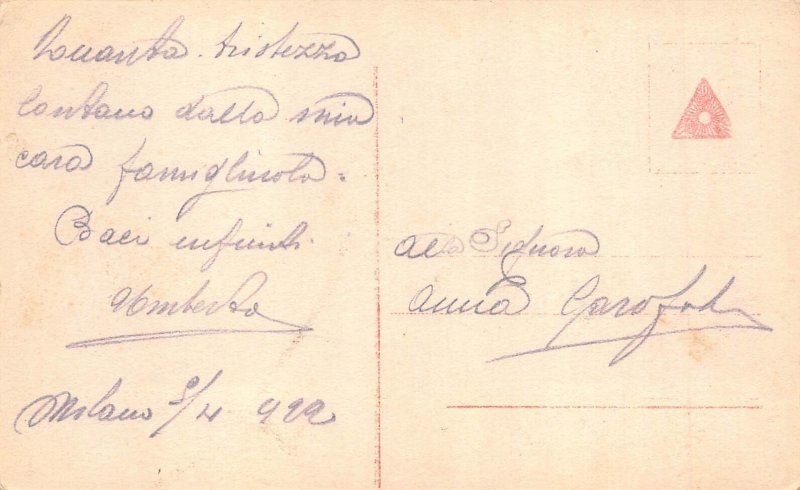 Quanta tristezza
lontano dalla mia
cara famigliuola =
Baci infiniti
Umberto
Milano 5/4 922
Alla Signora
Anna